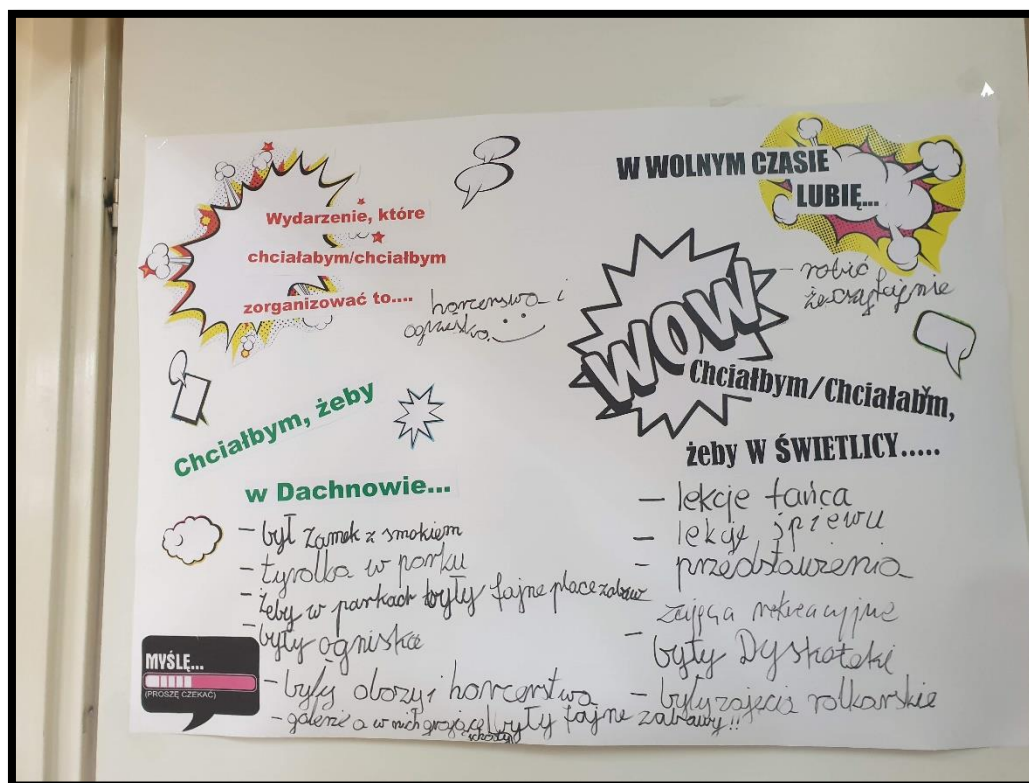 Wydarzenie, które
chciałabym/chciałbym
zorganizować to....
harcerstwa i
ogniska
W WOLNYM CZASIE
LUBIĘ...
- robić
WOW
Chciałbym/Chciałabym,
żeby W ŚWIETLICY.....
- lekcje tańca
- lekcje śpiewu
- przedstawienia
zajęcia rekreacyjne
- były Dyskoteki
- były zajęcia rolkarskie
Chciałbym, żeby
w Dachnowie...
- był zamek z smokiem
- tyrolka w parku
- żeby w parkach były fajne place zabaw
- były ogniska
- były obozy i harcerstwa
- galerie a w nich grające schody
były fajne zabawy!!
MYŚLĘ...
(PROSZĘ CZEKAĆ)